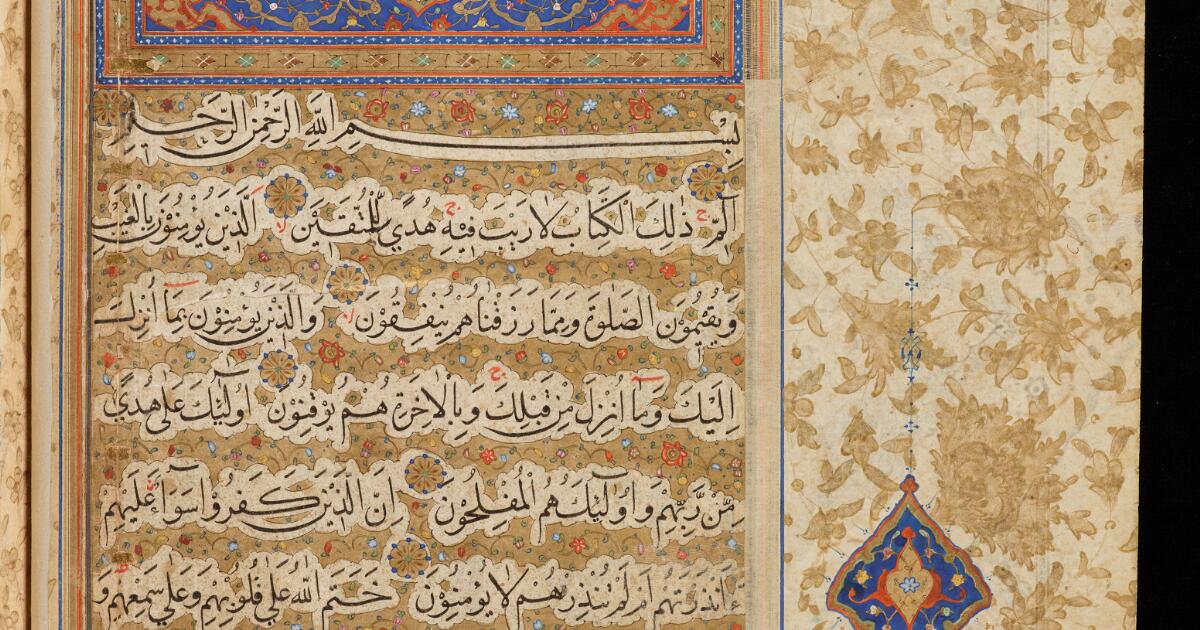 بِسْمِ اللهِ الرَّحْمٰنِ الرَّحِيمِ
الٓمّٓ ج ذٰلِكَ الْكِتَابُ لَارَيْبَ فِيْهِ ج هُدًي لِلْمُتَّقِيْنَ لا اَلَّذِيْنَ يُوْمِنُوْنَ بِالْغَيْبِ
وَيُقِيْمُوْنَ الصَّلٰوةَ وَمِمَّا رَزَقْنَاهُمْ يُنْفِقُوْنَ لا وَالَّذِيْنَ يُوْمِنُوْنَ بِمَٓا اُنْزِلَ
اِلَيْكَ وَمَٓا اُنْزِلَ مِنْ قَبْلِكَ ج وَبِالْاٰخِرَةِ هُمْ يُوْقِنُوْنَ اُولٰٓئِكَ عَلٰي هُدًي
مِنْ رَبِّهِمْ وَاُولٰٓئِكَ هُمُ الْمُفْلِحُوْنَ اِنَّ الَّذِيْنَ كَفَرُوْا سَوَٓاءٌ عَلَيْهِمْ
ءَاَنْذَرْتَهُمْ اَمْ لَمْ تُنْذِرْهُمْ لَا يُوْمِنُوْنَ خَتَمَ اللهُ عَلٰي قُلُوْبِهِمْ وَعَلٰي سَمْعِهِمْ ط وَ